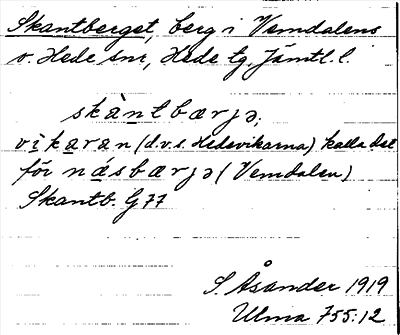 Skantberget, berg i Vemdalens
o. Hede snr, Hede tg. Jämtl. l.
skàntbærjə;
vìkaran (d.v.s. Hedevikarna) kalla det
för násbærjə (Vemdalen)
Skantb. G 77
S. Åsander 1919
Ulma 755:12